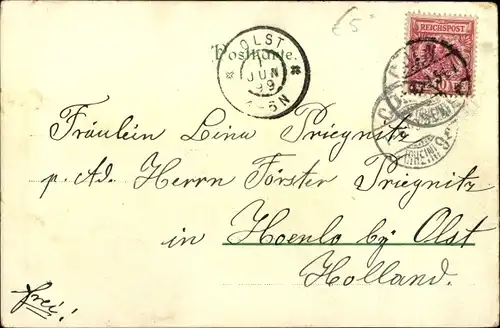 €5
REICHSPOST
Postkarte.
OLST
1
JUN
99
4-5N
10
(RHEIN)
Fräulein Lina Priegnitz
p. Ad. Herrn Förster Priegnitz
in Hoenlo by Olst
Holland.
frei!